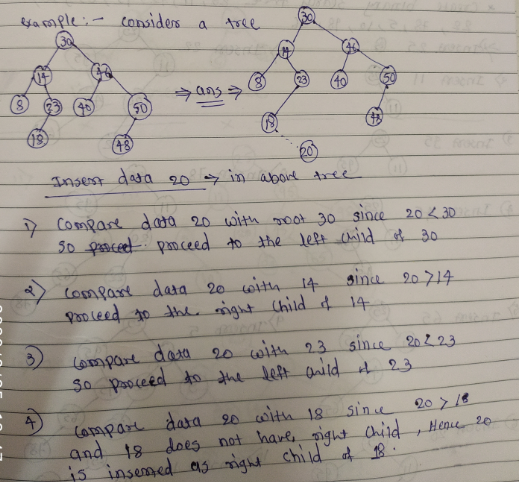 Example :- consider a tree
30
14
46
8
23
40
50
18
48
⇒ ans ⇒
30
14
46
8
23
40
50
18
48
20
Insert data 20 → in above tree
1) compare data 20 with root 30 since 20 < 30
so proceed proceed to the left child of 30
2) compare data 20 with 14 since 20 > 14
proceed to the right child of 14
3) compare data 20 with 23 since 20 < 23
so proceed to the left child of 23
4) compare data 20 with 18 since 20 > 18
and 18 does not have right child, Hence 20
is inserted as right child of 18.